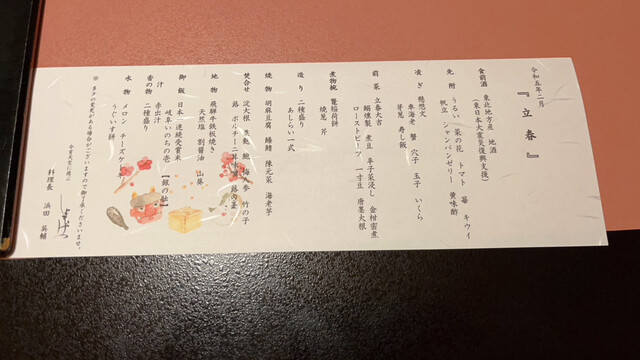 令和五年二月
『立春』
食前酒 東北地方産 地酒
（東日本大震災復興支援）
先附 うるい 菜の花 トマト 苺 キウイ
帆立 シャンパンゼリー 黄味酢
凌ぎ 懸想文
車海老 蟹 穴子 玉子 いくら
芽葱 寿し飯
前菜 立春大吉
鰯燻製 煮豆 辛子菜浸し 金柑蜜煮
ローストビーツ 一寸豆 唐墨大根
煮物椀 鶉稲荷餅
焼葱 芹
造り 二種盛り
あしらい一式
焼物 胡麻豆腐 鰆 陳元菜 海老芋
焚合せ 淀大根 生麩 鮑 海の参 竹の子
蕗 ポルチーニ
地物 飛騨牛鉄板焼き
天然塩 割醤油 山葵
御飯 日本一連続受賞米
岐阜いのちの壱 【銀の朏】
汁 赤出汁
香の物 二種盛り
水物 メロン チーズケーキ
うぐいす餅
※ 多少の変更がある場合がございますので御了承くださいませ。
料理長 浜田 英輔